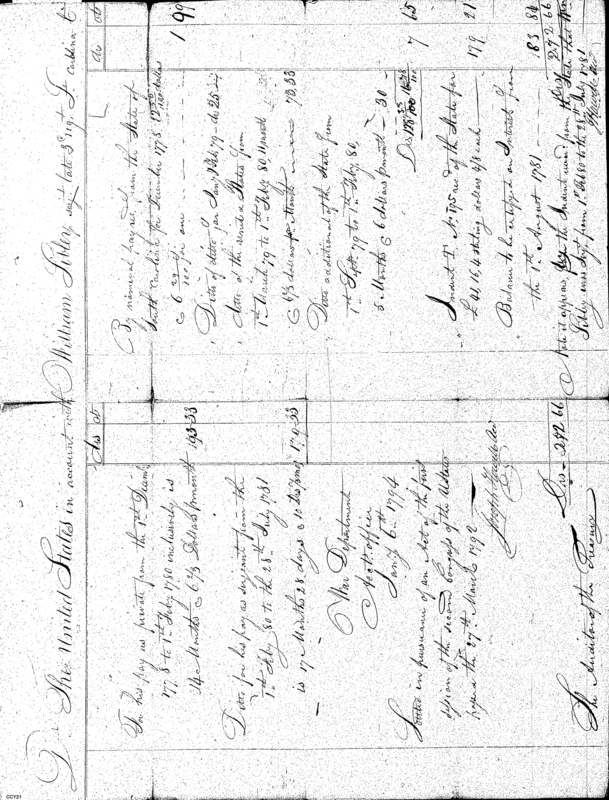 Dr The United States in account with William Sibley serjt late 3d regt So Carolina Cr
Drs cts
To his pay as private from the 1st Decemb
1778 to 1st Feby 1780 inclusively is
14 Months @ 6 2/3 Dollars pr month 93 33
Ditto for his pay as serjeant from the
1st Feby 80 to the 28th July 1781
is 17 Months 28 days @ 10 drs pr mo 179 33
War Department
Accts office
Jany 6th 1794
Settled in pursuance of an Act of the first
session of the second Congress of the United
passed the 27th March 1792
Joseph Howell
Drs 272 66
The Auditor of the Treasury
Drs cts
By nominal payments from the State of
South Carolina for December 1778 12 dollars
@ 6 for one 1 99
Ditto of ditto for Jany & Feby 79 - do 25
Ditto of the United States from
1st March 79 to 1st Feby 80, 11 months
@ 6 2/3 dollars pr Month 73 33
Ditto additional of the State from
1st Sept 79 to 1st Feby 80,
5 Months @ 6 dollars pr month 30
Drs 128 7 65
Indent I No 175 rec'd of the State for
£ 41.16.4 sterling dollars 4/8 each 179 21
Balance to be certified on Interest from
the 1st August 1781 83 81
Drs 272 66
Note it appears by the Indent recd from the State that Wm
Sibley was serjt from 1st Feb 80 to the 28th July 1781
CCY21